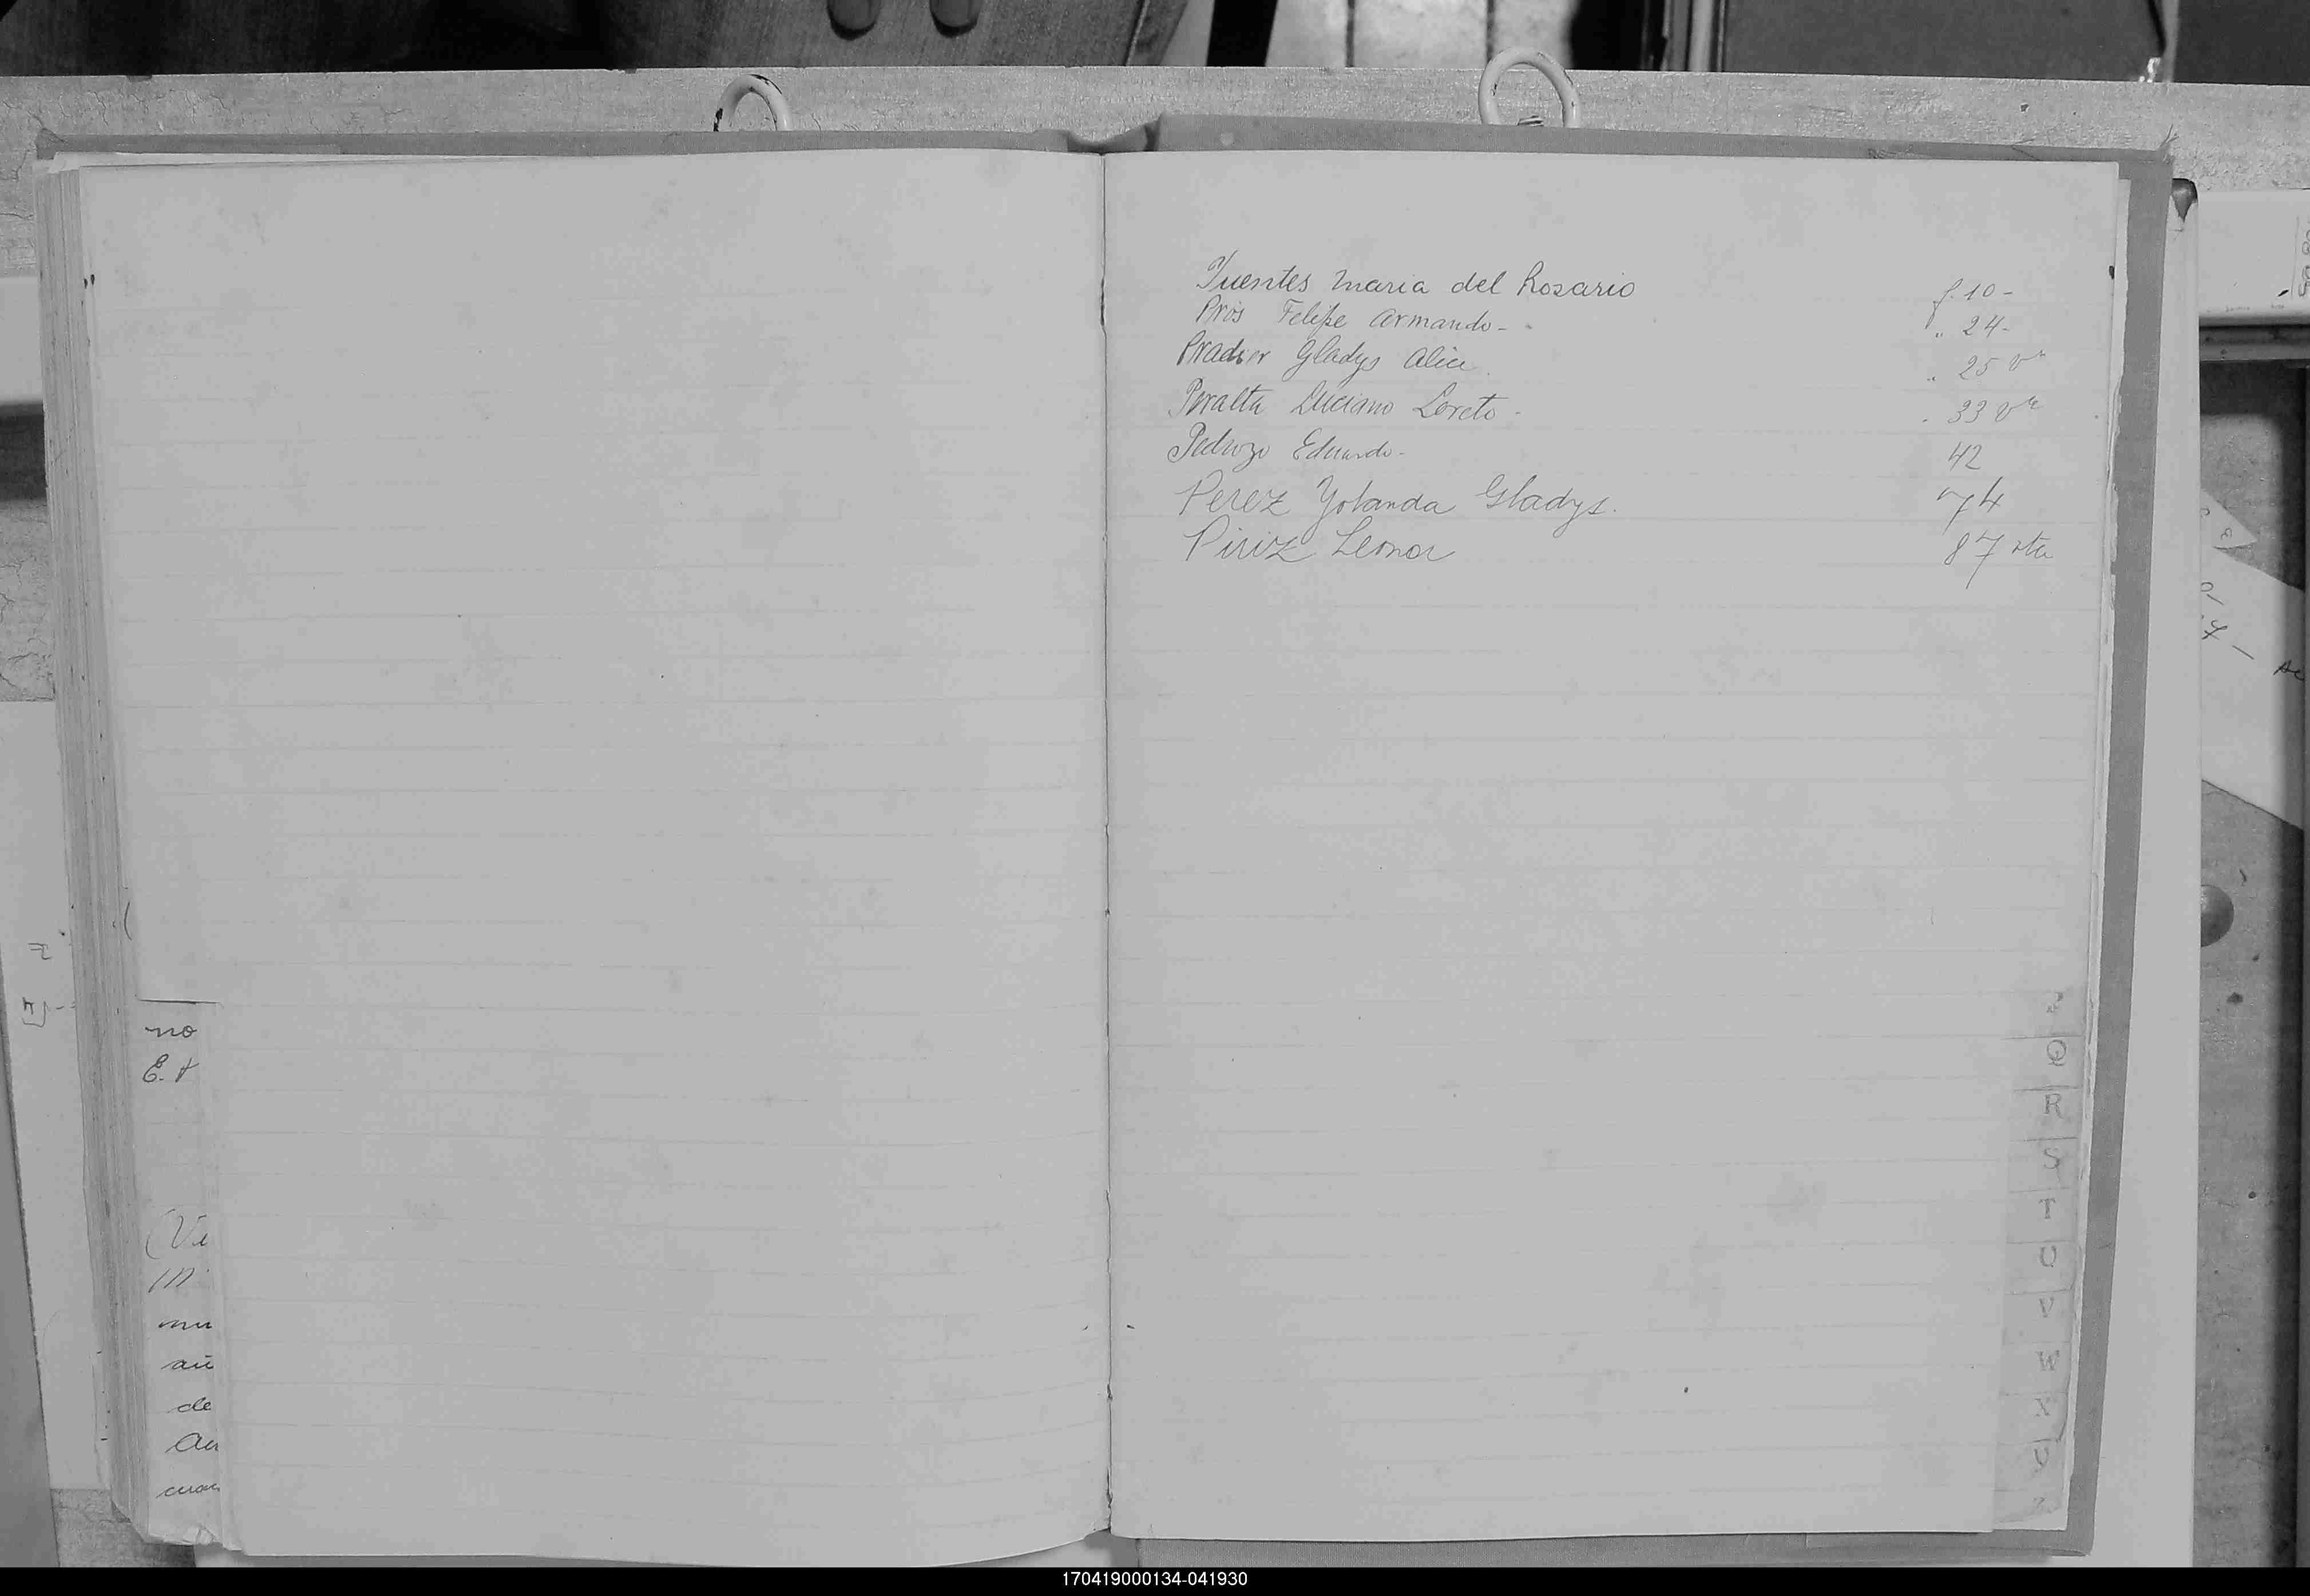 Puentes Maria del Rosario f. 10-
Pros Felipe Armando- " 24-
Pradier Gladys Alicia. " 25 vta
Peralta Luciano Loreto- " 33 vta
Pedrozo Eduardo- 42
Perez Yolanda Gladys. 74
Piriz Leonor 87 vta
no
E.
(Vi
m
mu
añ
de
P
Q
R
S
T
U
V
W
X
170419000134-041930